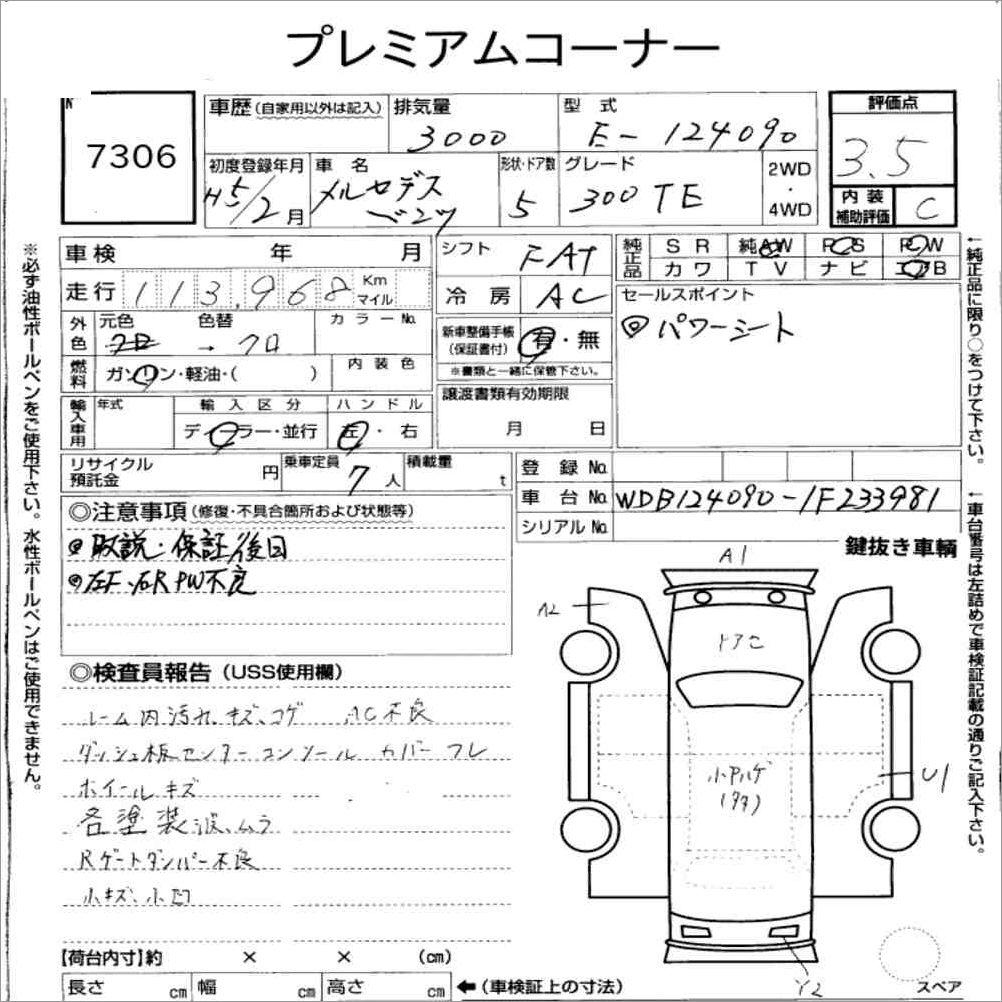 プレミアムコーナー
7306
車歴 (自家用以外は記入)
排気量
3000
型式
E-124090
評価点
3.5
初度登録年月
H5/2月
車名
メルセデス
ベンツ
形状・ドア数
5
グレード
300TE
2WD
・
4WD
内装
補助評価
C
車検 年 月
シフト
FAT
純正品
SR 純AW PS PW
カワ TV ナビ エアB
走行 113,968 Km
マイル
冷房
AC
セールスポイント
◎パワーシート
外色
元色 色替
カラーNo.
→クロ
新車整備手帳
(保証書付)
有・無
※書類と一緒に保管下さい。
燃料
ガソリン・軽油・( )
内装色
譲渡書類有効期限
月 日
輸入車用
年式
輸入区分
ディーラー・並行
ハンドル
左・右
リサイクル
預託金
円
乗車定員
7人
積載量
t
登録No.
車台No. WDB124090-1F233981
シリアルNo.
鍵抜き車輌
◎注意事項 (修復・不具合箇所および状態等)
◎取説・保証後日
◎左F、右R PW不良
◎検査員報告 (USS使用欄)
ルーム内汚れ、キズ、コゲ AC不良
ダッシュ板センターコンソールカバーワレ
ホイールキズ
各塗装波、ムラ
Rゲートダンパー不良
小キズ、小凹
A1
A2
トアミ
小Pハゲ
U1
Y2
スペア
【荷台内寸】約 × × (cm)
長さ cm 幅 cm 高さ cm
←(車検証上の寸法)
※必ず油性ボールペンをご使用下さい。水性ボールペンはご使用できません。
←純正品に限り○をつけて下さい。
←車台番号は左詰めで車検証記載の通りご記入下さい。